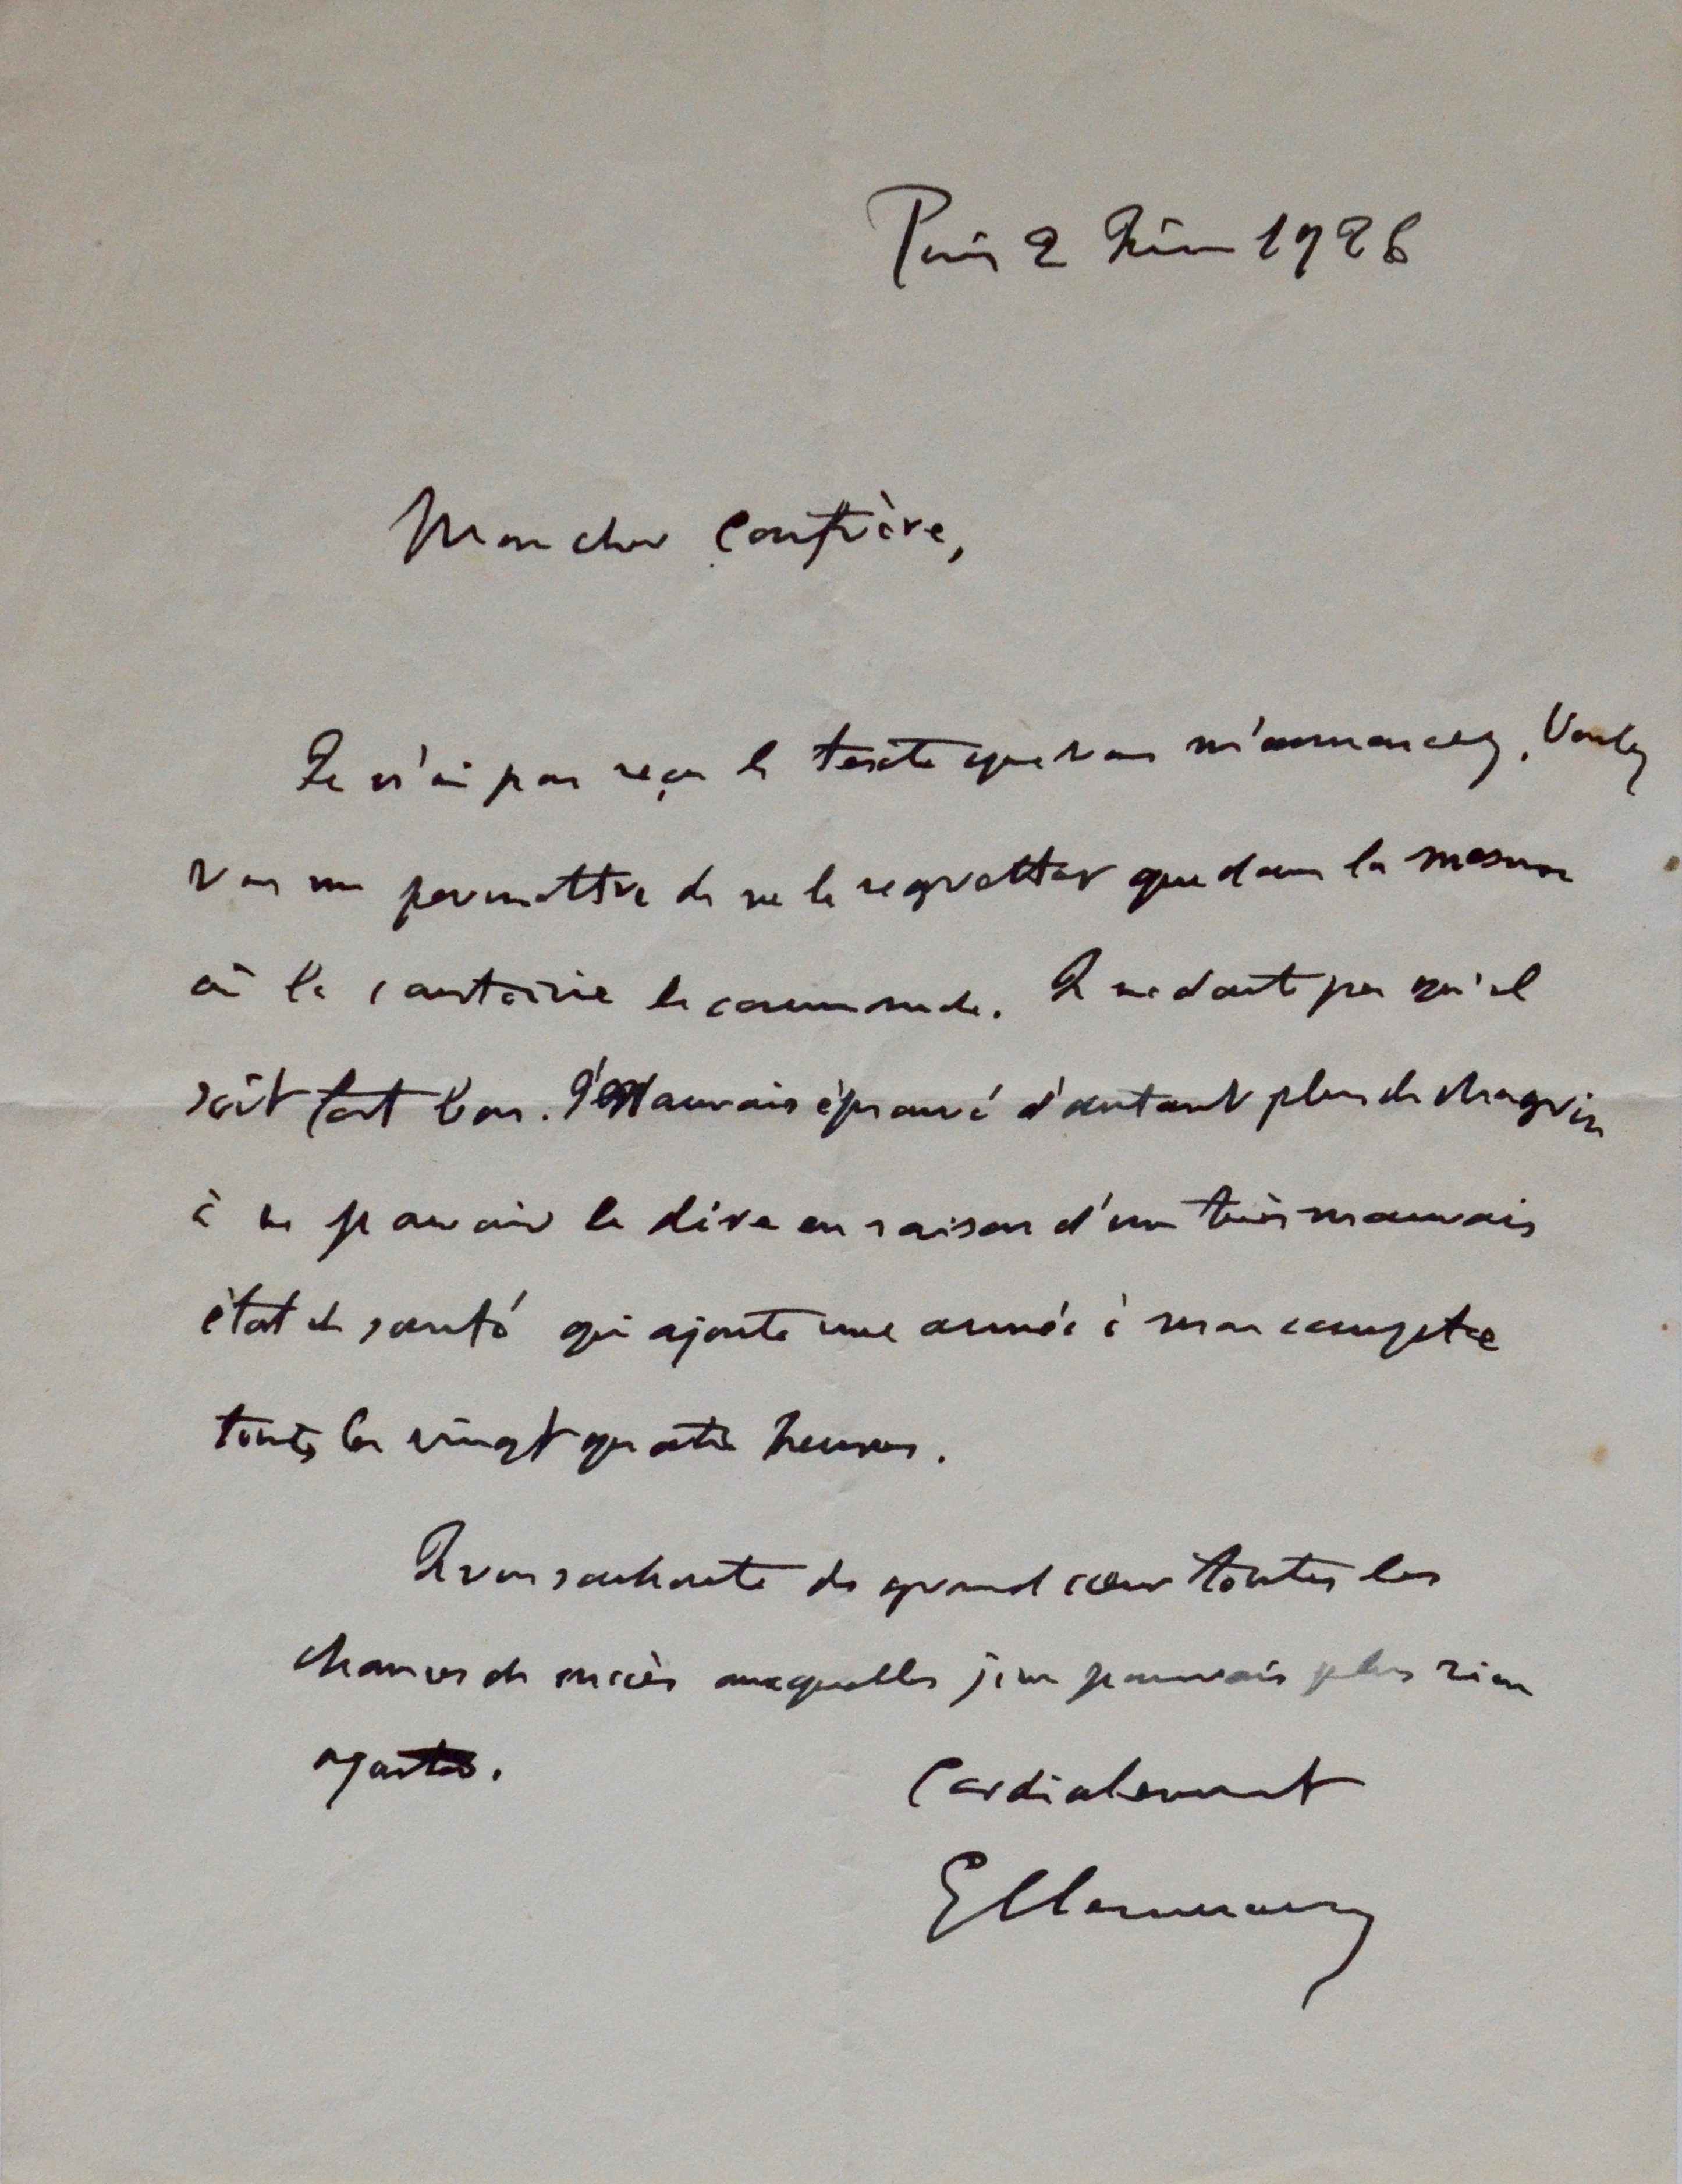 Paris 2 Juin 1926
Mon cher confrère,
Je n'ai pas reçu le texte que vous m'annoncez. Voulez
vous me permettre de ne le regretter que dans la mesure
où la courtoisie le commande. Je ne doute pas qu'il
soit fort bon. J'en aurais éprouvé d'autant plus de chagrin
à ne pouvoir le dire en raison d'un très mauvais
état de santé qui ajoute une année à mon compte
toutes les vingt quatre heures.
Je vous souhaite de grand cœur toutes les
chances de succès auxquelles je ne pouvais plus rien
ajouter.
Cordialement
GClemenceau